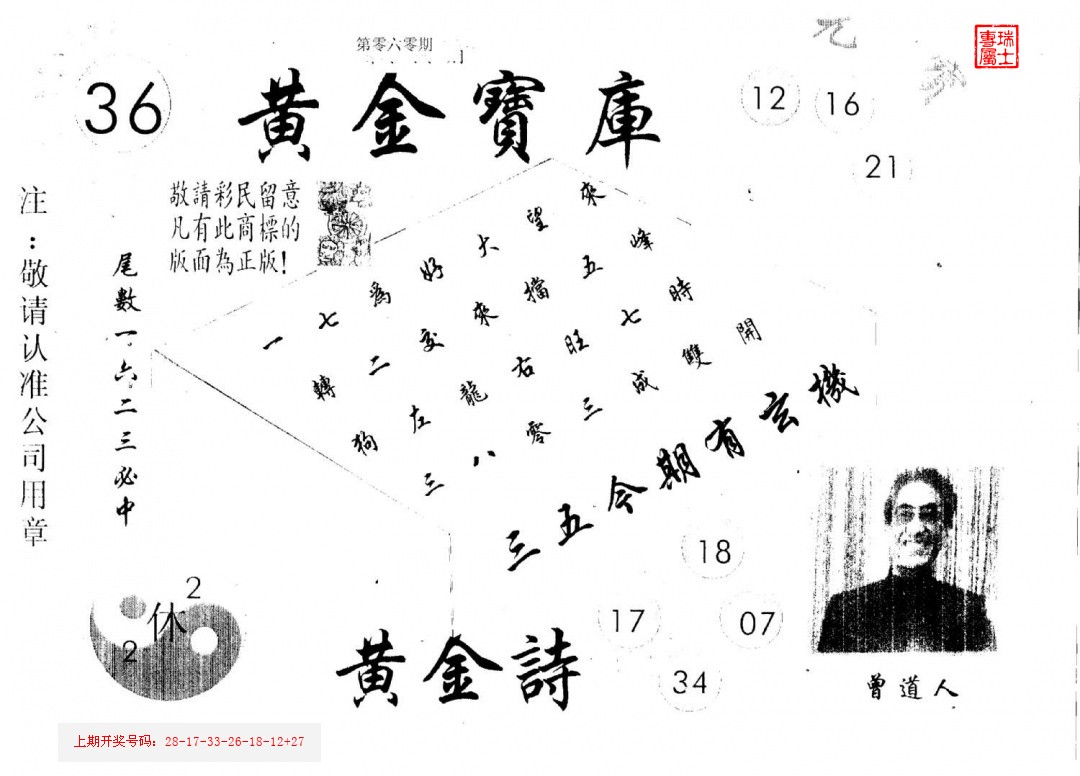 第零六零期
瑞士
專屬
36
黃金寶庫
12
16
21
敬請彩民留意
凡有此商標的
版面為正版!
注：敬请认准公司用章
尾數一、六二三必中
一七為好大望來
轉二交來擋五峰
狗左龍右旺七時
三八零三成雙開
三五今期有玄機
18
17
07
34
2
休
2
黃金詩
曾道人
上期开奖号码：28-17-33-26-18-12+27